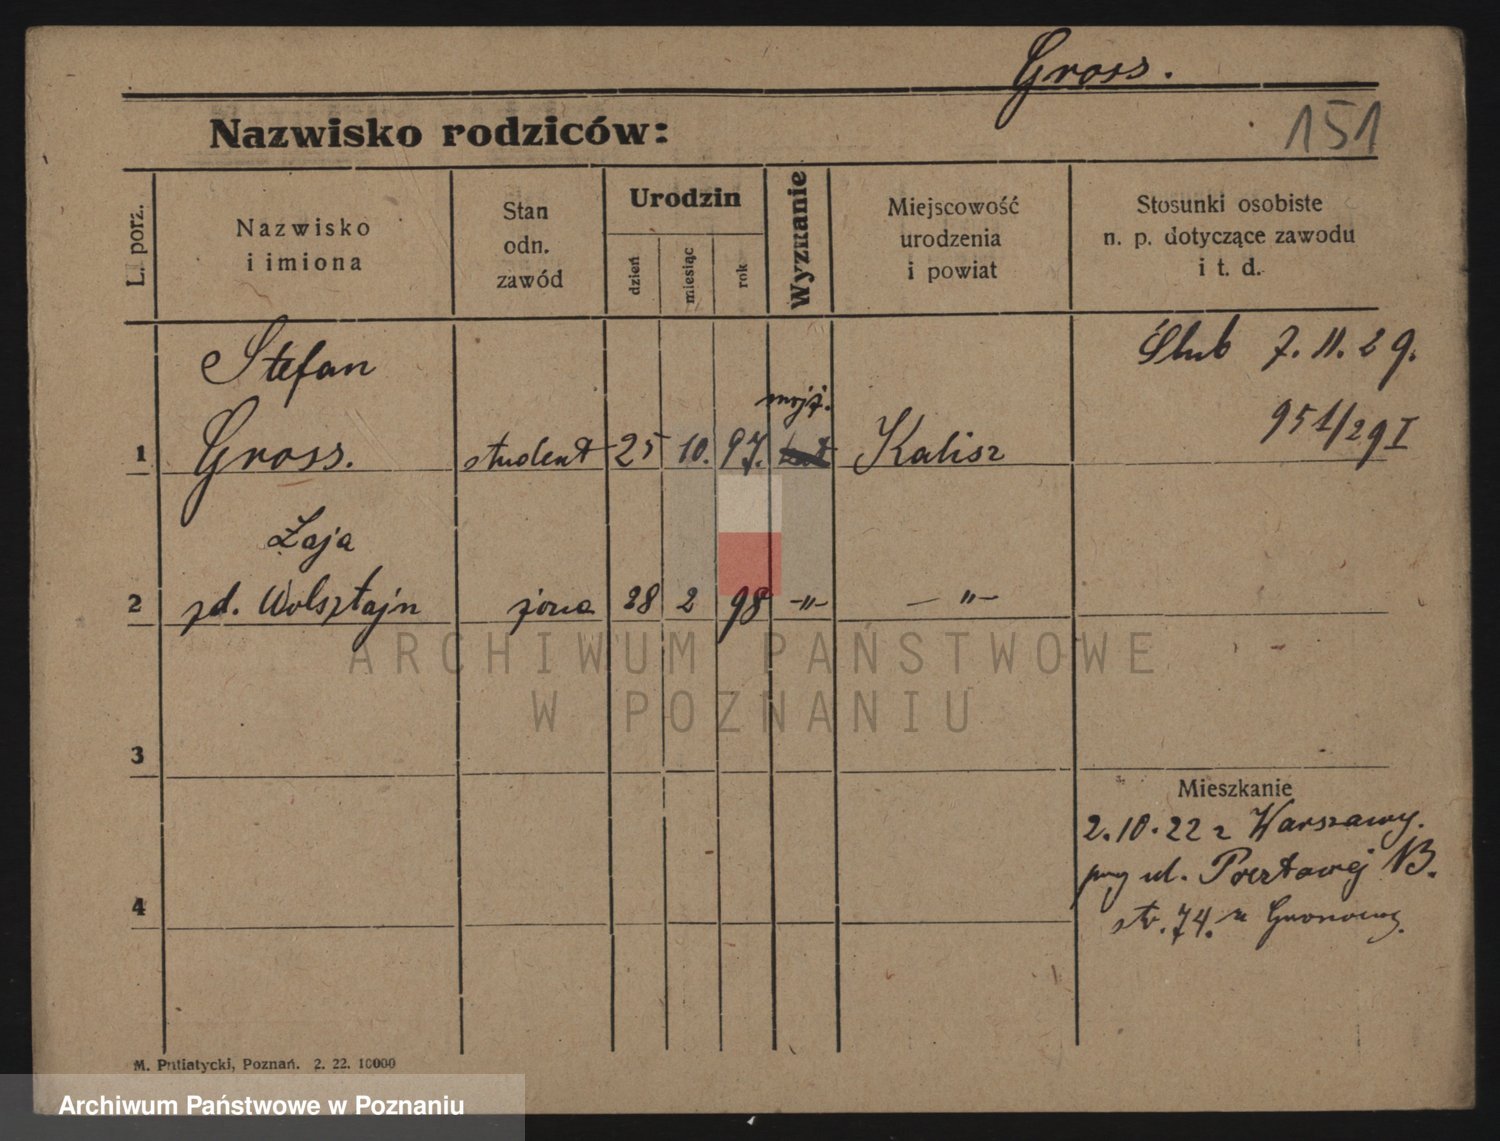 Gross.
151
Nazwisko rodziców:
L. porz.
Nazwisko
i imiona
Stan
odn.
zawód
Urodzin
dzień
miesiąc
rok
Wyznanie
Miejscowość
urodzenia
i powiat
Stosunki osobiste
n. p. dotyczące zawodu
i t. d.
Stefan
Ślub 7. 11. 29.
951/29 I
mojż.
1 Gross. student 25 10. 97. Kalisz
Łaja
2 zd. Wolsztajn żona 28 2 98 -"- -"-
ARCHIWUM PAŃSTWOWE
W POZNANIU
3
Mieszkanie
2.10.22 z Warszawy.
przy ul. Pocztowej
4
str. 74. u
M. Putiatycki, Poznań. 2. 22. 10000
Archiwum Państwowe w Poznaniu